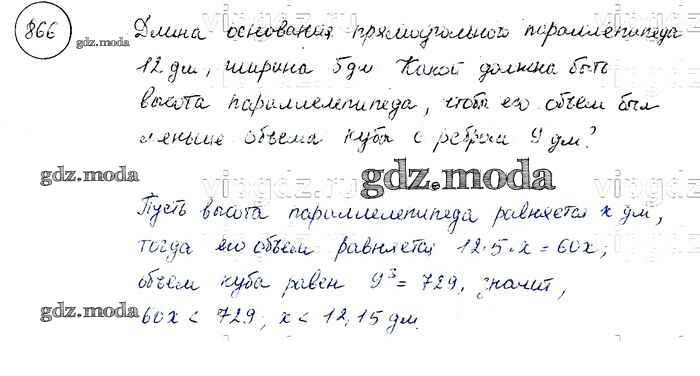 866
Длина основания прямоугольного параллелепипеда
12 дм, ширина 5 дм Какой должна быть
высота параллелепипеда, чтобы его объем был
меньше объема куба с ребром 9 дм?
gdz.moda
gdz.moda
gdz.moda
Пусть высота параллелепипеда равняется x дм,
тогда его объем равняется 12·5·x = 60x;
объем куба равен 9³ = 729, значит,
gdz.moda
60x < 729; x < 12,15 дм.